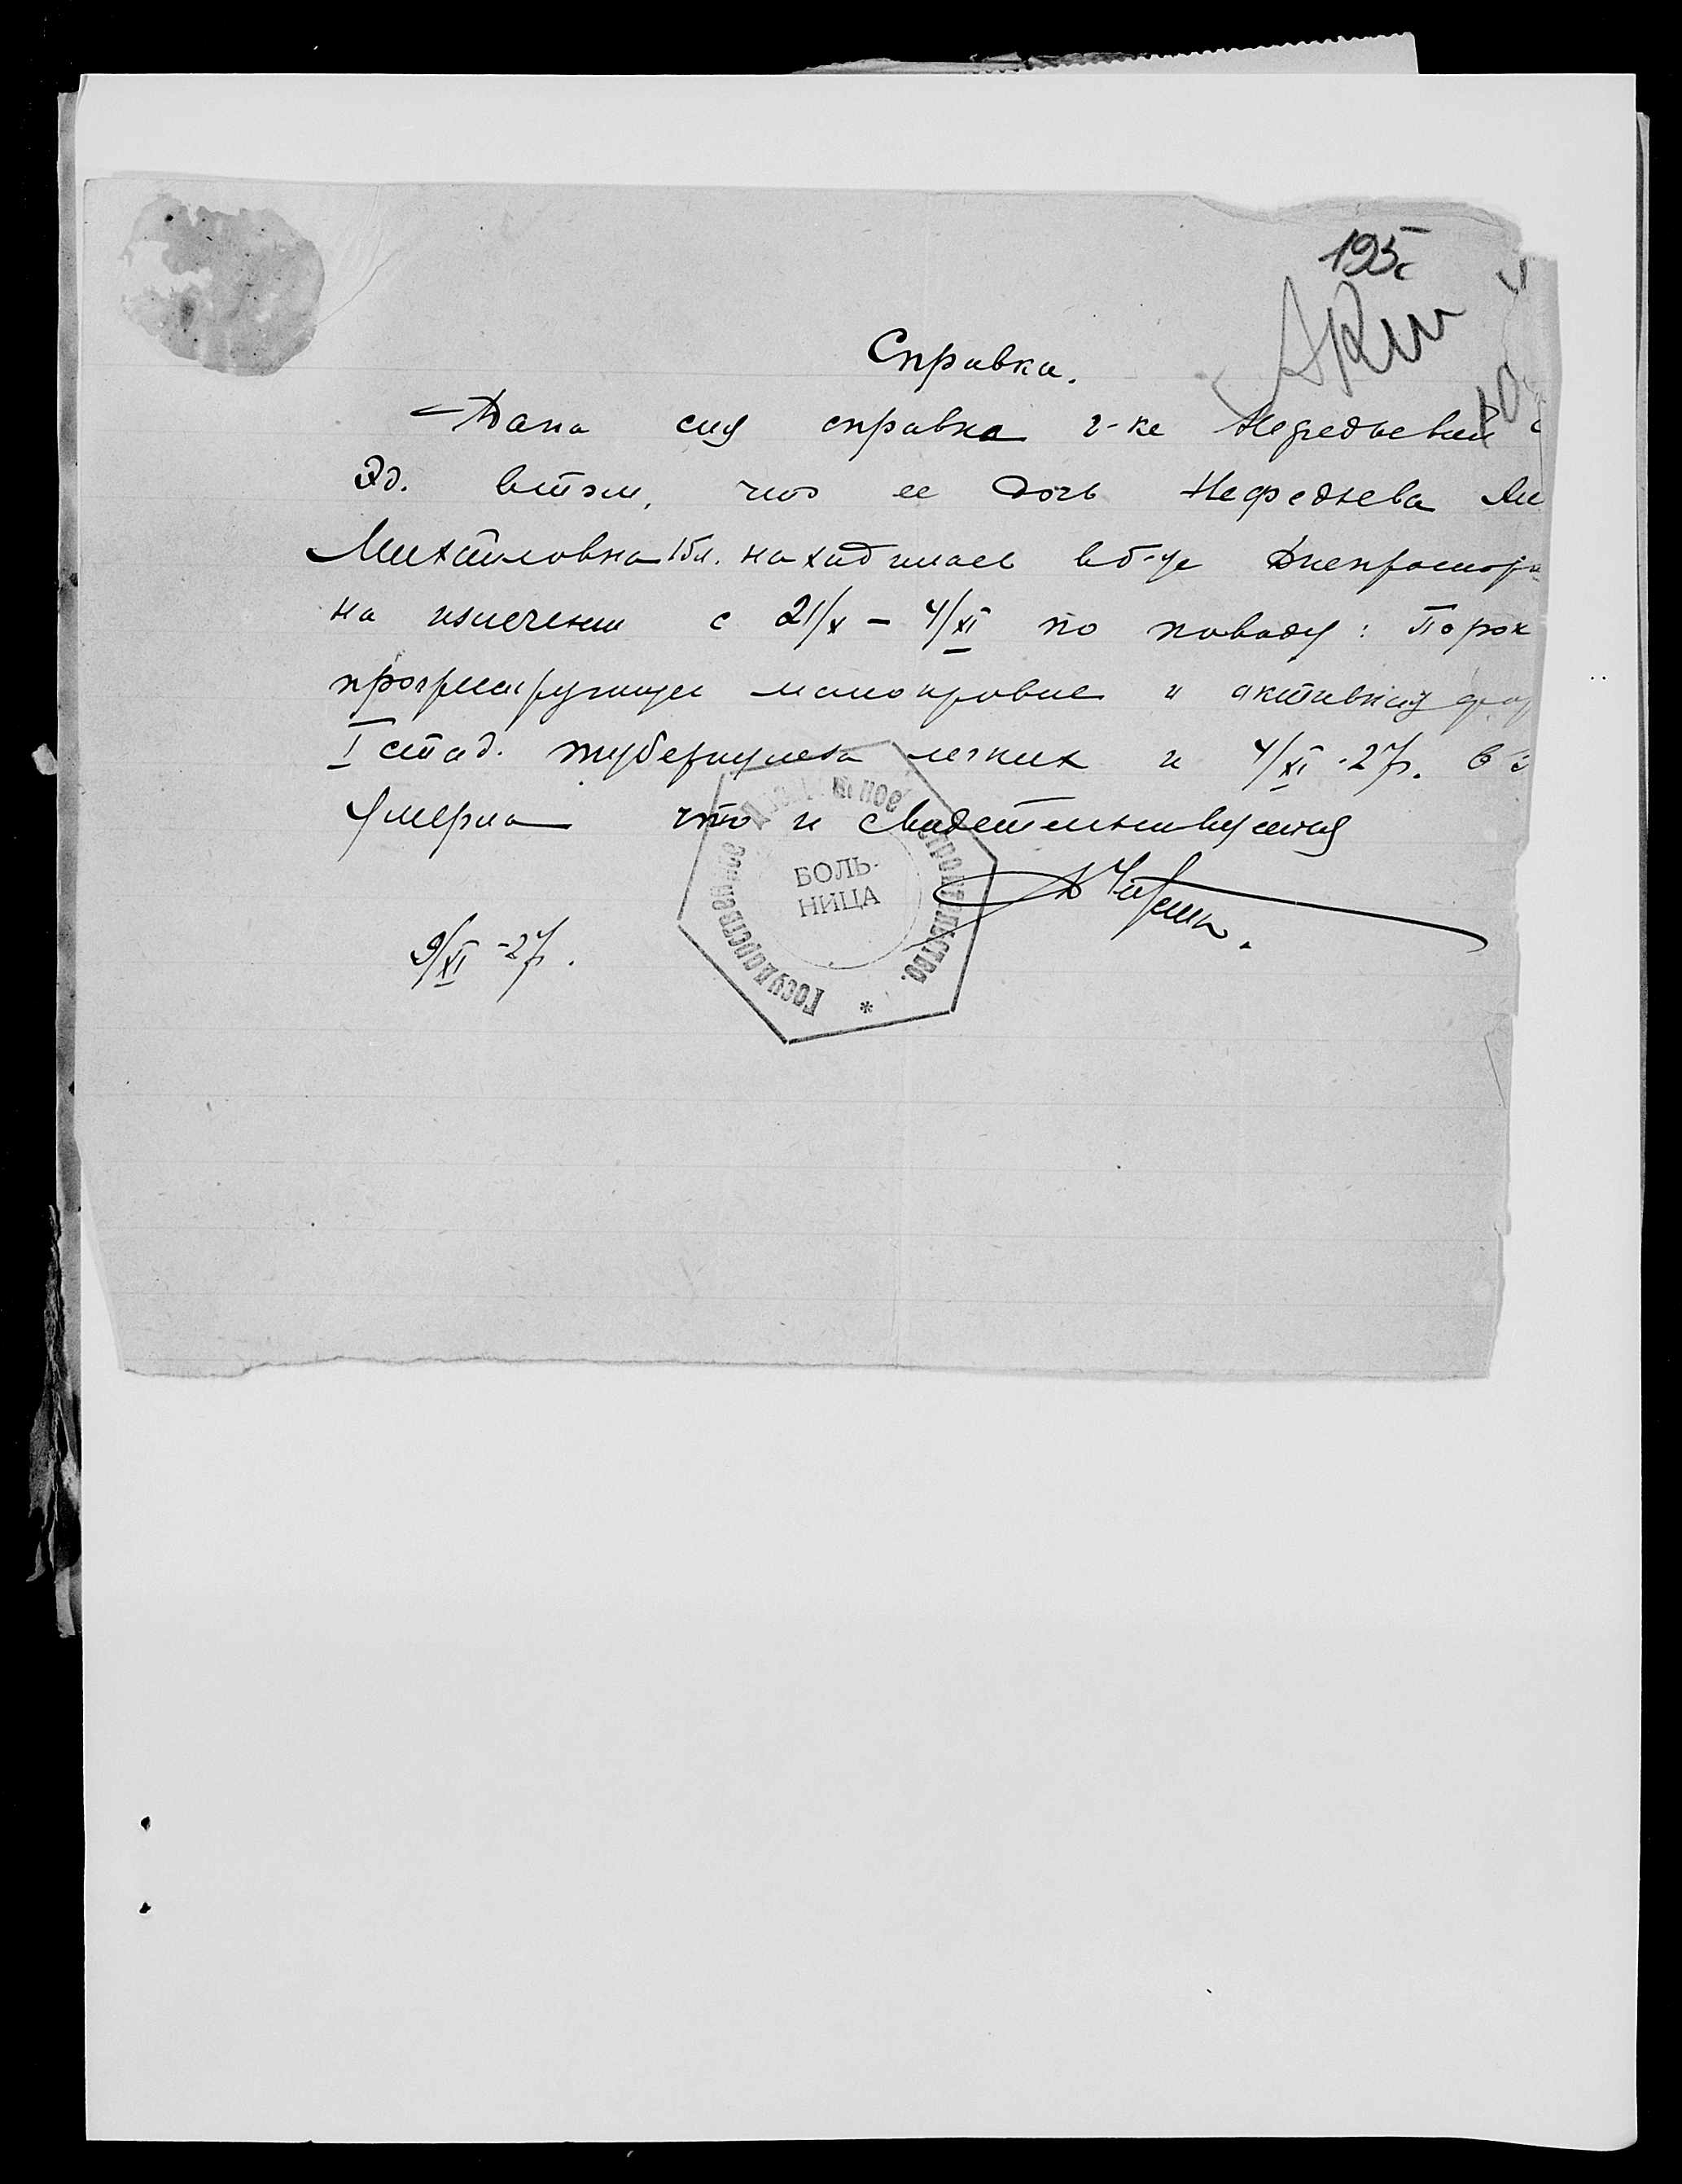 195
Справка.
Дана сия справка г-ке Нефедьевой
Эд. в том, что ее дочь Нефедьева
Михайловна 15л. находилась в б-це Днепростр
на излечении с 21/X – 4/XI по поводу: Порок
прогрессирующее малокровие и активную
I стад. туберкулеза легких и 4/XI -27г. в
умерла что и свидетельствуется
Государственное Днепровское Строительство.
БОЛЬ-
НИЦА
9/XI -27г.